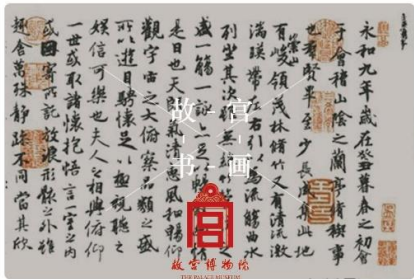 永和九年歲在癸丑暮春之初會
于會稽山陰之蘭亭脩禊事
也羣賢畢至少長咸集此地
有崇山峻領茂林脩竹又有清流激
湍暎帶左右引以為流觴曲水
列坐其次雖無
盛一觴一詠亦足以暢敘幽情
是日也天朗氣清惠風和暢仰
觀宇宙之大俯察品類之盛
所以遊目騁懷足以極視聽之
娛信可樂也夫人之相與俯仰
一世或取諸懷抱悟言一室之內
或因寄所託放浪形骸之外雖
趣舍萬殊靜躁不同當其欣
故宮
书画
故宫博物院
THE PALACE MUSEUM